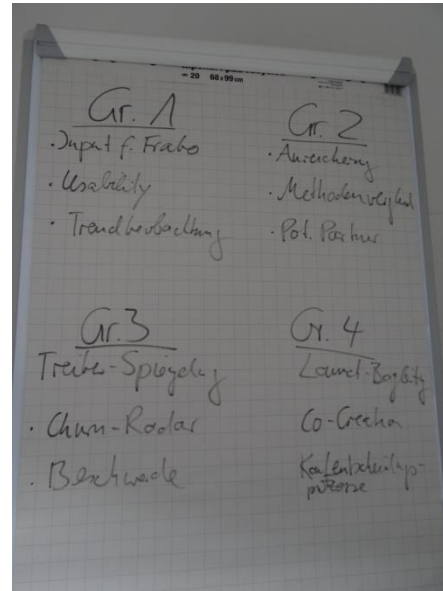 = 20 68x99cm
Gr. 1
· Input f. Frabo
· Usability
· Trendbeobachtung
Gr. 2
· Anreicherung
· Methodenvergleich
· Pot. Partner
Gr. 3
Treiber-Spiegelung
· Churn-Radar
· Beschwerde
Gr. 4
Launch-Begleitg
Co-Creation
Kaufentscheidungs-
prozesse